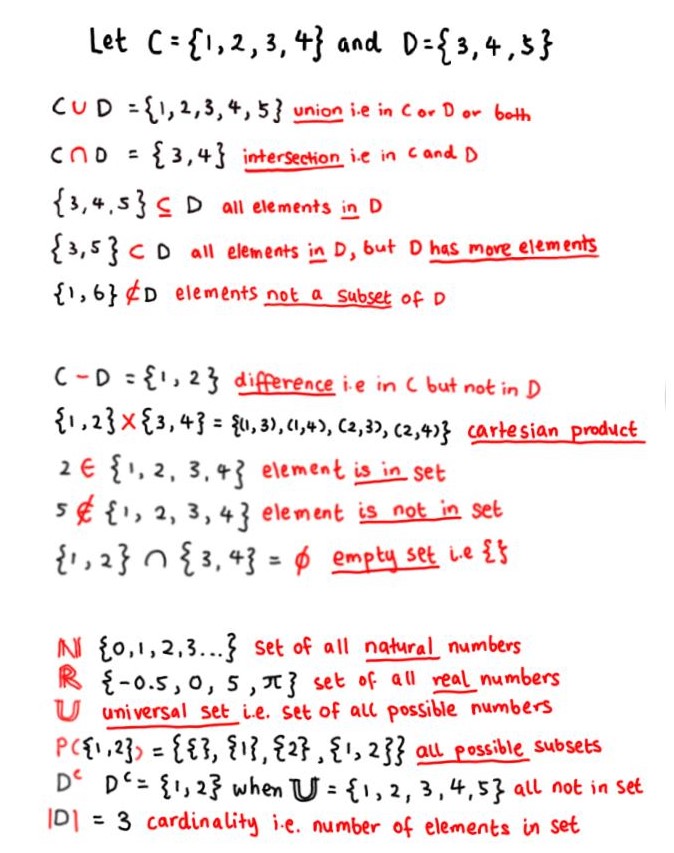 Let C = {1, 2, 3, 4} and D = {3, 4, 5}
C ∪ D = {1, 2, 3, 4, 5} union i.e in C or D or both
C ∩ D = {3, 4} intersection i.e in C and D
{3, 4, 5} ⊆ D all elements in D
{3, 5} ⊂ D all elements in D, but D has more elements
{1, 6} ⊄ D elements not a subset of D
C - D = {1, 2} difference i.e in C but not in D
{1, 2} X {3, 4} = {(1, 3), (1, 4), (2, 3), (2, 4)} cartesian product
2 ∈ {1, 2, 3, 4} element is in set
5 ∉ {1, 2, 3, 4} element is not in set
{1, 2} ∩ {3, 4} = ϕ empty set i.e {}
ℕ {0, 1, 2, 3...} set of all natural numbers
ℝ {-0.5, 0, 5, π} set of all real numbers
𝕌 universal set i.e. set of all possible numbers
P({1, 2}) = {{}, {1}, {2}, {1, 2}} all possible subsets
Dᶜ Dᶜ = {1, 2} when 𝕌 = {1, 2, 3, 4, 5} all not in set
|D| = 3 cardinality i.e. number of elements in set